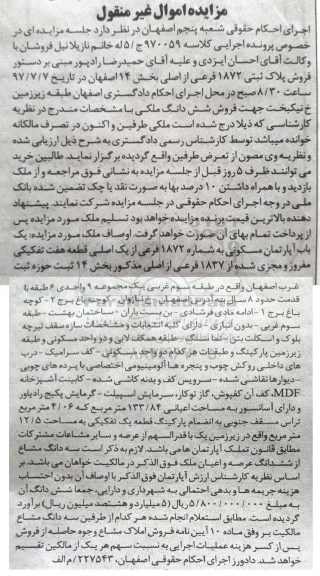 مزایده اموال غیر منقول
اجرای احکام حقوقی شعبه پنجم اصفهان در نظر دارد جلسه مزایده ای در
خصوص پرونده اجرایی کلاسه ۹۷۰۰۵۹ ج/۵ له خانم نازیلا نیل فروشان با
وکالت آقای احسان ایزدی و علیه آقای حمیدرضا رادپور مبنی بر دستور
فروش پلاک ثبتی ۱۸۷۲ فرعی از اصلی بخش ۱۴ اصفهان در تاریخ ۹۷/۷/۷
ساعت ۸/۳۰ صبح در محل اجرای احکام دادگستری اصفهان طبقه زیرزمین
خ نیکبخت جهت فروش شش دانگ ملکی با مشخصات مندرج در نظریه
کارشناسی که ذیلا درج شده است ملکی طرفین و اکنون در تصرف مالکانه
خوانده میباشد توسط کارشناس رسمی دادگستری به شرح ذیل ارزیابی شده
و نظریه وی مصون از تعرض طرفین واقع گردیده برگزار نماید. طالبین خرید
می توانند ظرف ۵ روز قبل از جلسه مزایده به نشانی فوق مراجعه و از ملک
بازدید و با همراه داشتن ۱۰ درصد بها به صورت نقد یا چک تضمین شده بانک
ملی در وجه اجرای احکام حقوقی در جلسه مزایده شرکت نمایند. پیشنهاد
دهنده بالاترین قیمت برنده مزایده خواهد بود تسلیم ملک مورد مزایده پس
از پرداخت تمام بهای آن صورت خواهد گرفت. اوصاف ملک مورد مزایده: یک
باب آپارتمان مسکونی به شماره ۱۸۷۲ فرعی از یک اصلی قطعه هفت تفکیکی
مفروز و مجزی شده از ۱۸۳۷ فرعی از اصلی مذکور بخش ۱۴ ثبت حوزه ثبت
غرب اصفهان واقع در طبقه سوم غربی یک مجموعه ۹ واحدی ۶ طبقه با
قدمت حدود ۸ سال به آدرس اصفهان - خ کوچه باغ برج ۲ - کوچه
باغ برج ۱ - ادامه مادی فرشادی - بن بست یاران - ساختمان بهشت - طبقه
سوم غربی - بدون انباری - دارای کلیه انشعابات و مشخصات سازه سقف تیرچه
بلوک و اسکلت بتن - نما سنگ - طبقه همکف لابی و دو واحد مسکونی و طبقه
زیرزمین پارکینگ و طبقات هر کدام دو واحد مسکونی - کف سرامیک - درب
های داخلی روکش چوب و پنجره ها آلومینیومی اختصاصی با پرده های چوبی
- دیوارها نقاشی شده - سرویس کف و بدنه کاشی شده - کابینت آشپزخانه
MDF، کف آن کفپوش، گاز توکار، سرمایش اسپیلت - گرمایش پکیج رادیاتور
و دارای آسانسور به مساحت اعیانی ۱۳۳/۸۴ متر مربع که ۴/۰۶ متر مربع
تراس مسقف جنوبی به انضمام پارکینگ قطعه یک تفکیکی به مساحت ۱۲/۵
متر مربع واقع در زیرزمین یک با قدرالسهم از عرصه و سایر مشاعات مشترکات
مطابق قانون تملک آپارتمان ها می باشد. لازم به ذکر است سه دانگ مشاع
از ششدانگ عرصه و اعیان ملک فوق الذکر در مالکیت خواهان می باشد. بر
اساس نظریه کارشناس ارزش آپارتمان فوق الذکر با اوصاف آن بدون احتساب
هزینه جریمه ها و بدهی احتمالی به شهرداری و دارایی، جمعا شش دانگ آن
به مبلغ ۵/۸۰۰/۰۰۰/۰۰۰ ریال (۵ میلیارد و هشتصد میلیون ریال) برآورد
گردیده است. مطابق استعلام انجام شده هر کدام از طرفین سه دانگ مشاع
مالکیت بر وفق ماده ۱۰ آیین نامه فروش املاک مشاع وجوه حاصله از فروش
پس از کسر هزینه عملیات اجرایی به نسبت سهم هر یک از مالکین تقسیم
خواهد شد. دادورز اجرای احکام حقوقی اصفهان، ۲۲۷۵۴۳/م الف